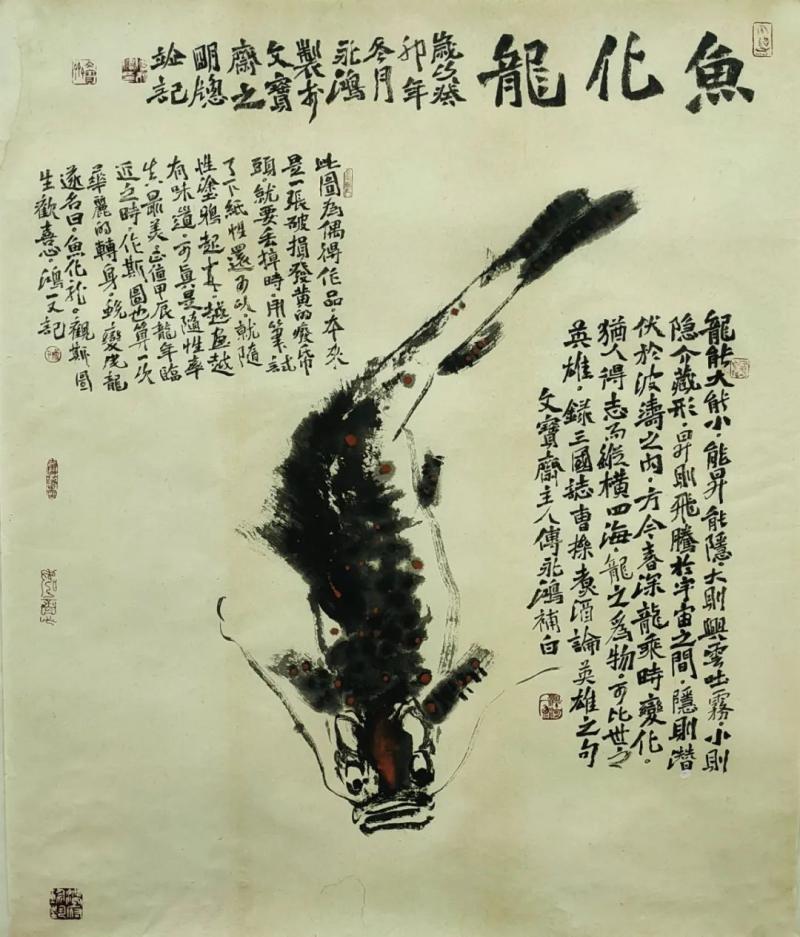 魚化龍
歲次癸
卯年
冬月
永鴻
製於
文寶
齋之
明牕
竝記
龍能大能小，能昇能隱，大則興雲吐霧，小則
隐介藏形，昇則飛騰於宇宙之間，隱則潜
伏於波濤之內，方今春深龍乘時變化。
猶人得志而縱橫四海，龍之為物，可比世之
英雄，錄三國誌曹操煑酒論英雄之句
文寶齋主人傅永鴻補白
此圖為偶得作品，本來
是一張破損發黃的廢帋
頭，就要丢掉時，用筆試
了下紙性還可以，就隨
性塗鴉起來，越画越
有味道，可真是隨性率
真最美，正值甲辰龍年臨
近之時，作斯圖也算一次
華麗的轉身，蜕變成龍
遂名曰，魚化龙。觀斯圖
生歡喜心，鴻又記